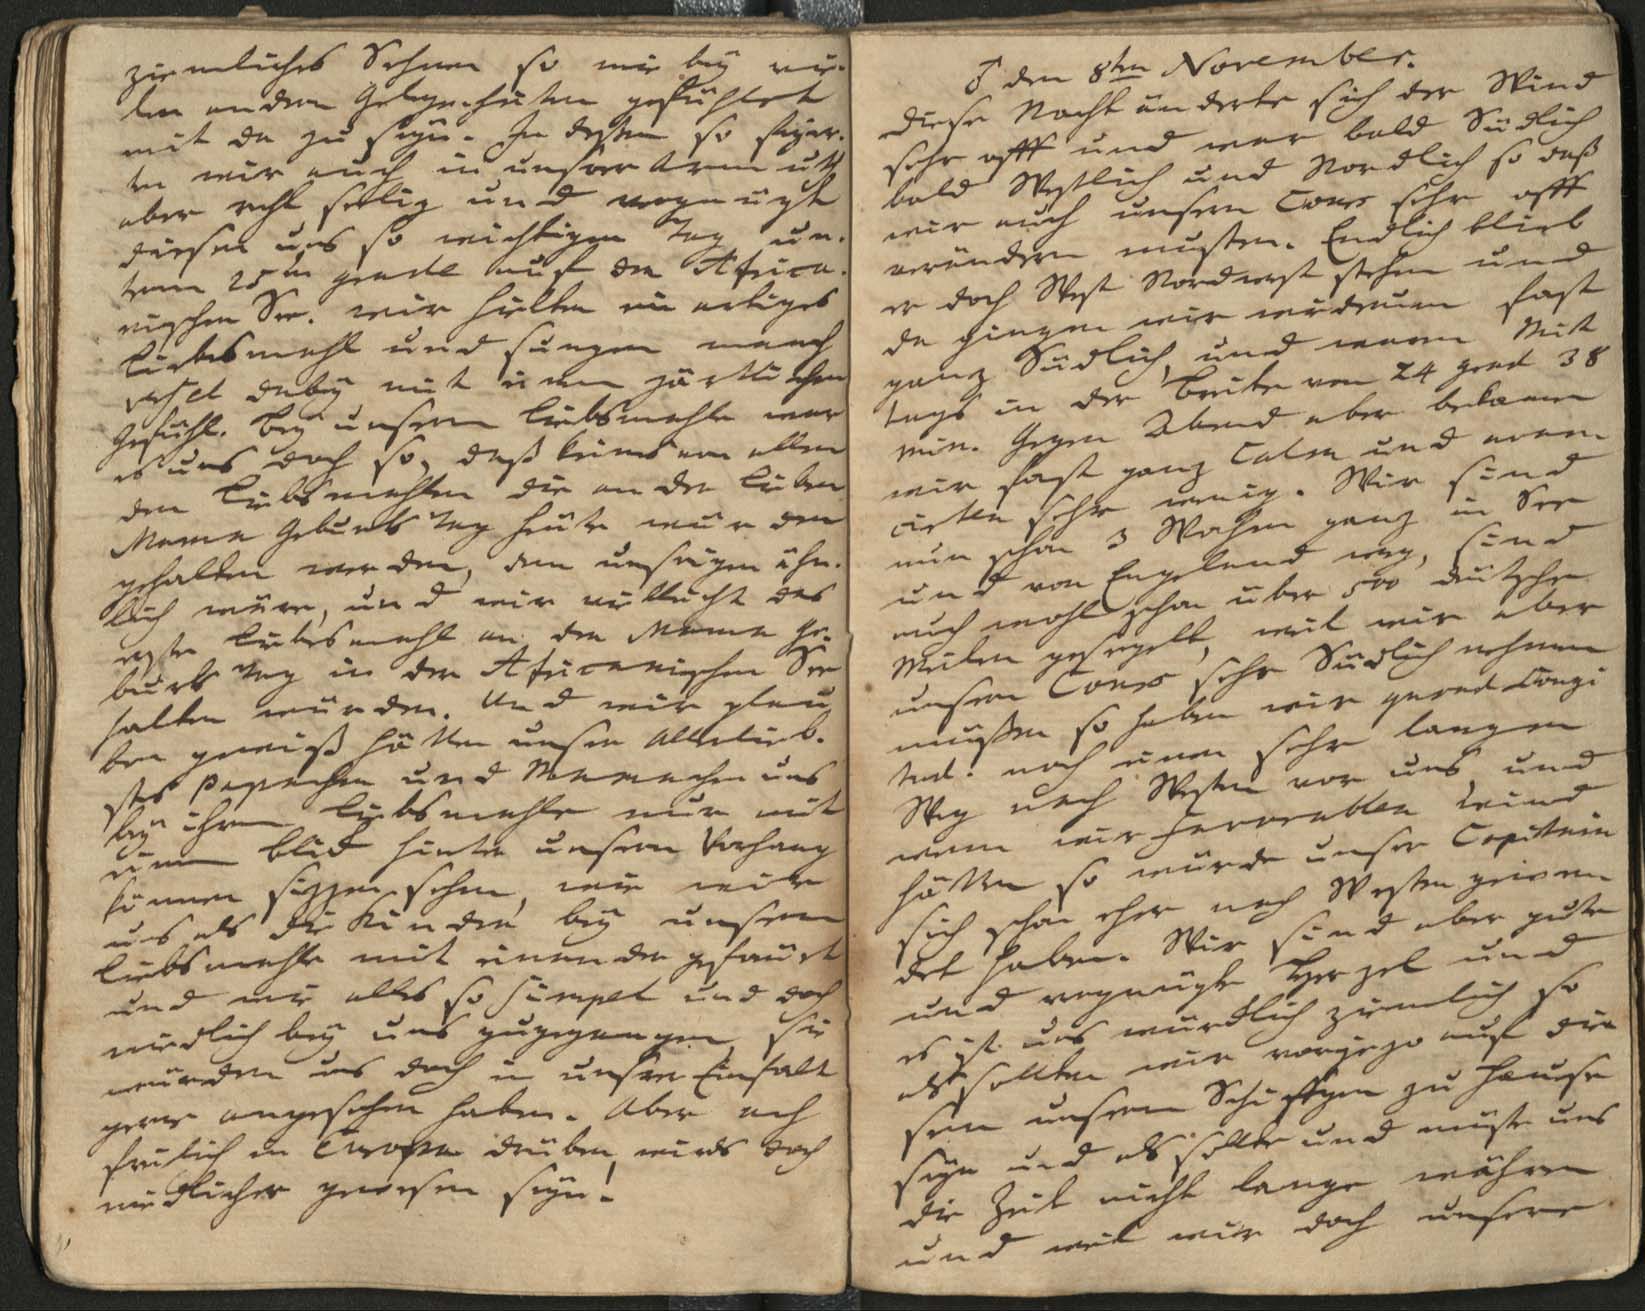 ziemliches Sehnen so wie bey vie-
len andern Gelegenheiten gefühlet
mit da zu seyn. In dessen so feyer-
ten wir auch in unsrer Armuth
aber recht selig und vergnügt
diesen uns so wichtigen Tag un-
term 25ten grade auf der Africa-
nischen See. wir hielten ein artiges
Liebesmahl und sungen manch
dabey mit einem zärtlichen
Gefühl. Bey unserm Liebsmahle war
es uns doch so, daß keines von allen
den Liebsmahlen die an der lieben
Mama Geburts Tag heute würden
gehalten werden, dem unsrigen ähn-
lich wäre, und wir vielleicht das
erste Liebesmahl an der Mama Ge-
burts Tag in der Africanischen See
halten würden. Und wir glau-
ben gewiß hätten unser Allerlieb-
stes Papachen und Mamachen uns
bey ihrem Liebsmahle nur mit
einem Blick hinter unserm Vorhang
können sizzen sehen, wie wir
uns als die Kinder bey unserm
Liebsmahle mit einander gefreuet
und wie alles so simpel und doch
niedlich bey uns zugegangen, sie
würden uns doch in unsrer Einfalt
gerne angesehen haben. Aber ach
freilich in Europa drüben wirds doch
niedlicher gewesen seyn.
♂ den 8ten November.
Diese Nacht änderte sich der Wind
sehr offt und war bald Südlich
bald Westlich und Nordlich so daß
wir auch unsern Cours sehr offt
verändern mußten. Endlich blieb
er doch West Nordwest stehen und
da gingen wir wiederum fast
ganz Südlich, und waren Mit
tags in der Breite von 24 grad 38
min. Gegen Abend aber bekamen
wir fast ganz Calm und avan-
cirten sehr wenig. Wir sind
nun schon 3 Wochen ganz in See
und von Engelland weg, sind
auch wohl schon über 500 deutsche
Meilen gesegelt, weil wir aber
unsern Cours sehr Südlich nehmen
mußten so haben wir grad Longi
tud. noch einen sehr langen
Weg nach Westen vor uns, und
wenn wir favorablen Wind
hätten so würde unser Capitain
sich schon eher nach Westen gewen
det haben. Wir sind aber gute
und vergnügte Herzel und
es ist uns würcklich ziemlich so
als sollten wir vorjezo auf die-
sem unserm Schiffgen zu Hause
seyn und als solte und müste uns
die Zeit nicht lange währen
und weil wir doch unsere